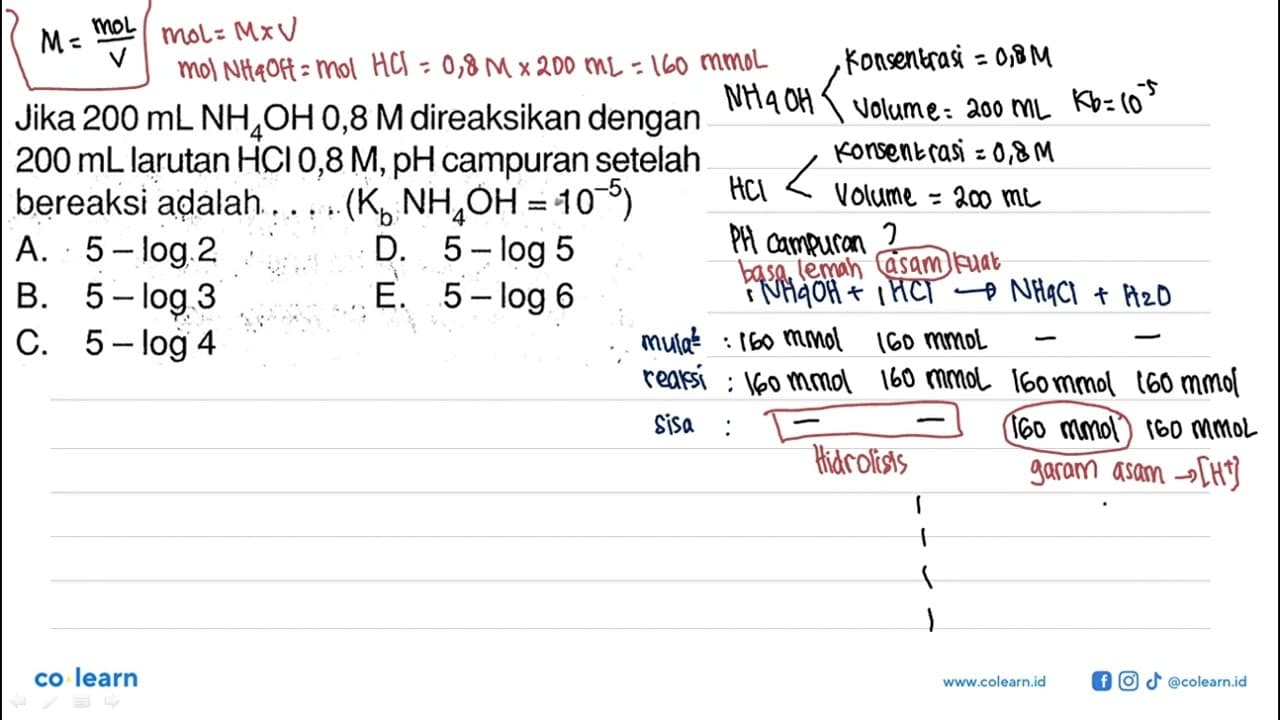 M = mol/V mol = M x V
mol NH4OH = mol HCl = 0,8 M x 200 mL = 160 mmol
Jika 200 mL NH₄OH 0,8 M direaksikan dengan
200 mL larutan HCl 0,8 M, pH campuran setelah
bereaksi adalah . . . . . (K_b NH₄OH = 10⁻⁵)
A. 5 – log 2
B. 5 – log 3
C. 5 – log 4
D. 5 – log 5
E. 5 – log 6
NH4OH
Konsentrasi = 0,8 M
Volume = 200 mL Kb = 10⁻⁵
HCl
Konsentrasi = 0,8 M
Volume = 200 mL
PH campuran ?
basa lemah asam kuat
1 NH4OH + 1 HCl → NH4Cl + H2O
mula² : 160 mmol 160 mmol — —
reaksi : 160 mmol 160 mmol 160 mmol 160 mmol
sisa : — — 160 mmol 160 mmol
Hidrolisis garam asam → [H⁺]
co learn
www.colearn.id
@colearn.id